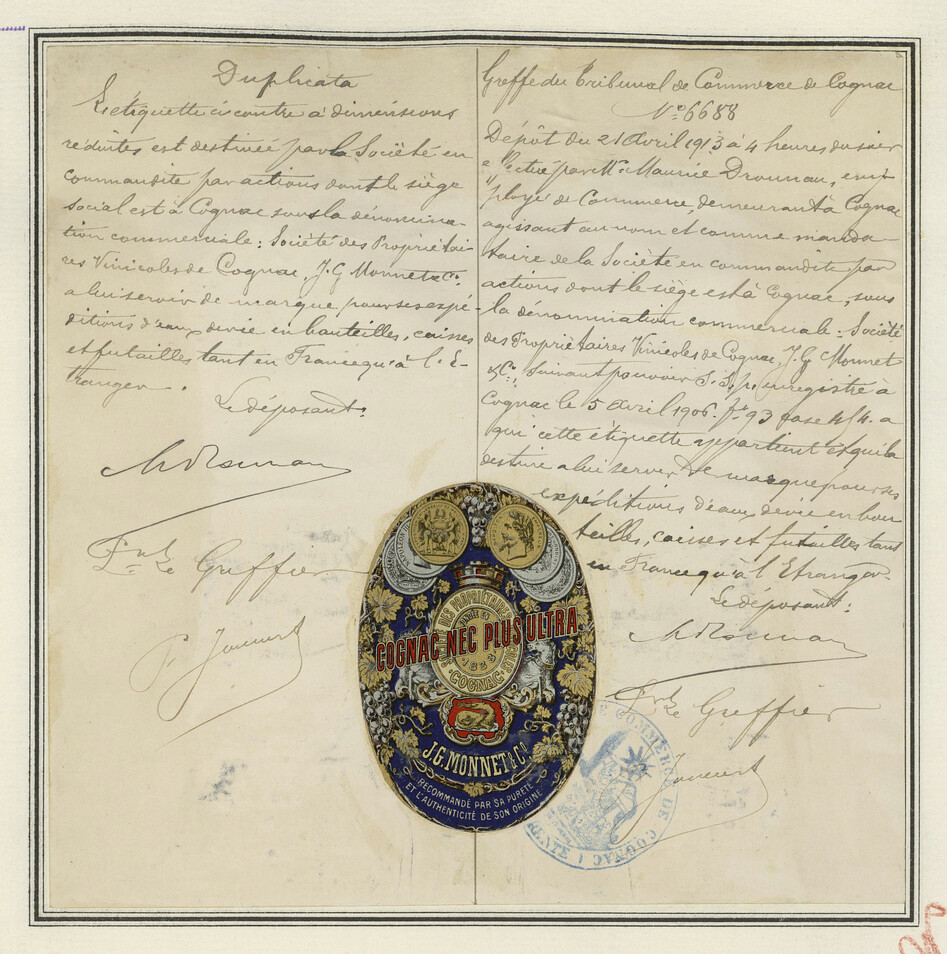 Duplicata
L'étiquette ci contre à dimensions
réduites est destinée par la Société en
commandite par actions dont le siège
social est à Cognac sous la dénomina-
tion commerciale: Société des Propriétai-
res Vinicoles de Cognac, J.G Monnet & Co
a lui servir de marque pour ses expé-
ditions d'eaux de vie en bouteilles, caisses
et futailles tant en France qu'à l'E-
tranger.
Le déposant:
Le Greffier
Greffe du Tribunal de Commerce de Cognac
No 6688
Dépôt du 21 Avril 1913 à 4 heures du soir
effectué par Mr Maurice Drounau, em-
ployé de Commerce, demeurant à Cognac
agissant au nom et comme manda-
taire de la Société en commandite par
actions dont le siège est à Cognac, sous
la dénomination commerciale: Société
des Propriétaires Vinicoles de Cognac, J.G Monnet
& Co, suivant pouvoir S.S.p. enregistré à
Cognac le 5 Avril 1906. fo 93 case 4/4. a
qui cette étiquette appartient et qui la
destine a lui servir de marque pour ses
expéditions d'eaux de vie en bou
teilles, caisses et futailles tant
en France qu'à l'Etranger.
Le déposant:
Le Greffier
DES PROPRIÉTAIRES
COGNAC NEC PLUS ULTRA
1838
COGNAC
J.G. MONNET & Co
RECOMMANDÉ PAR SA PURETÉ
ET L'AUTHENTICITÉ DE SON ORIGINE
COMMERCE DE COGNAC